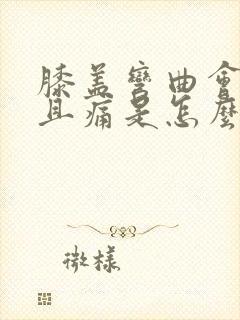 膝盖彎曲會
且痛是怎麼
微樣